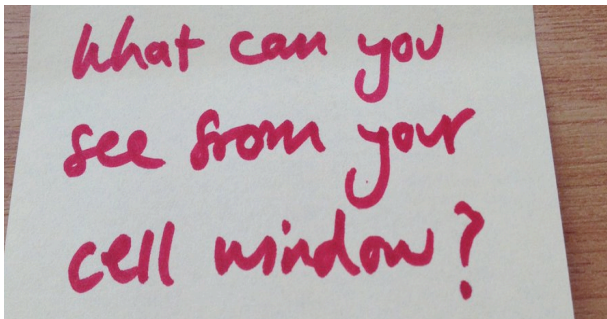 What can you
see from your
cell window?